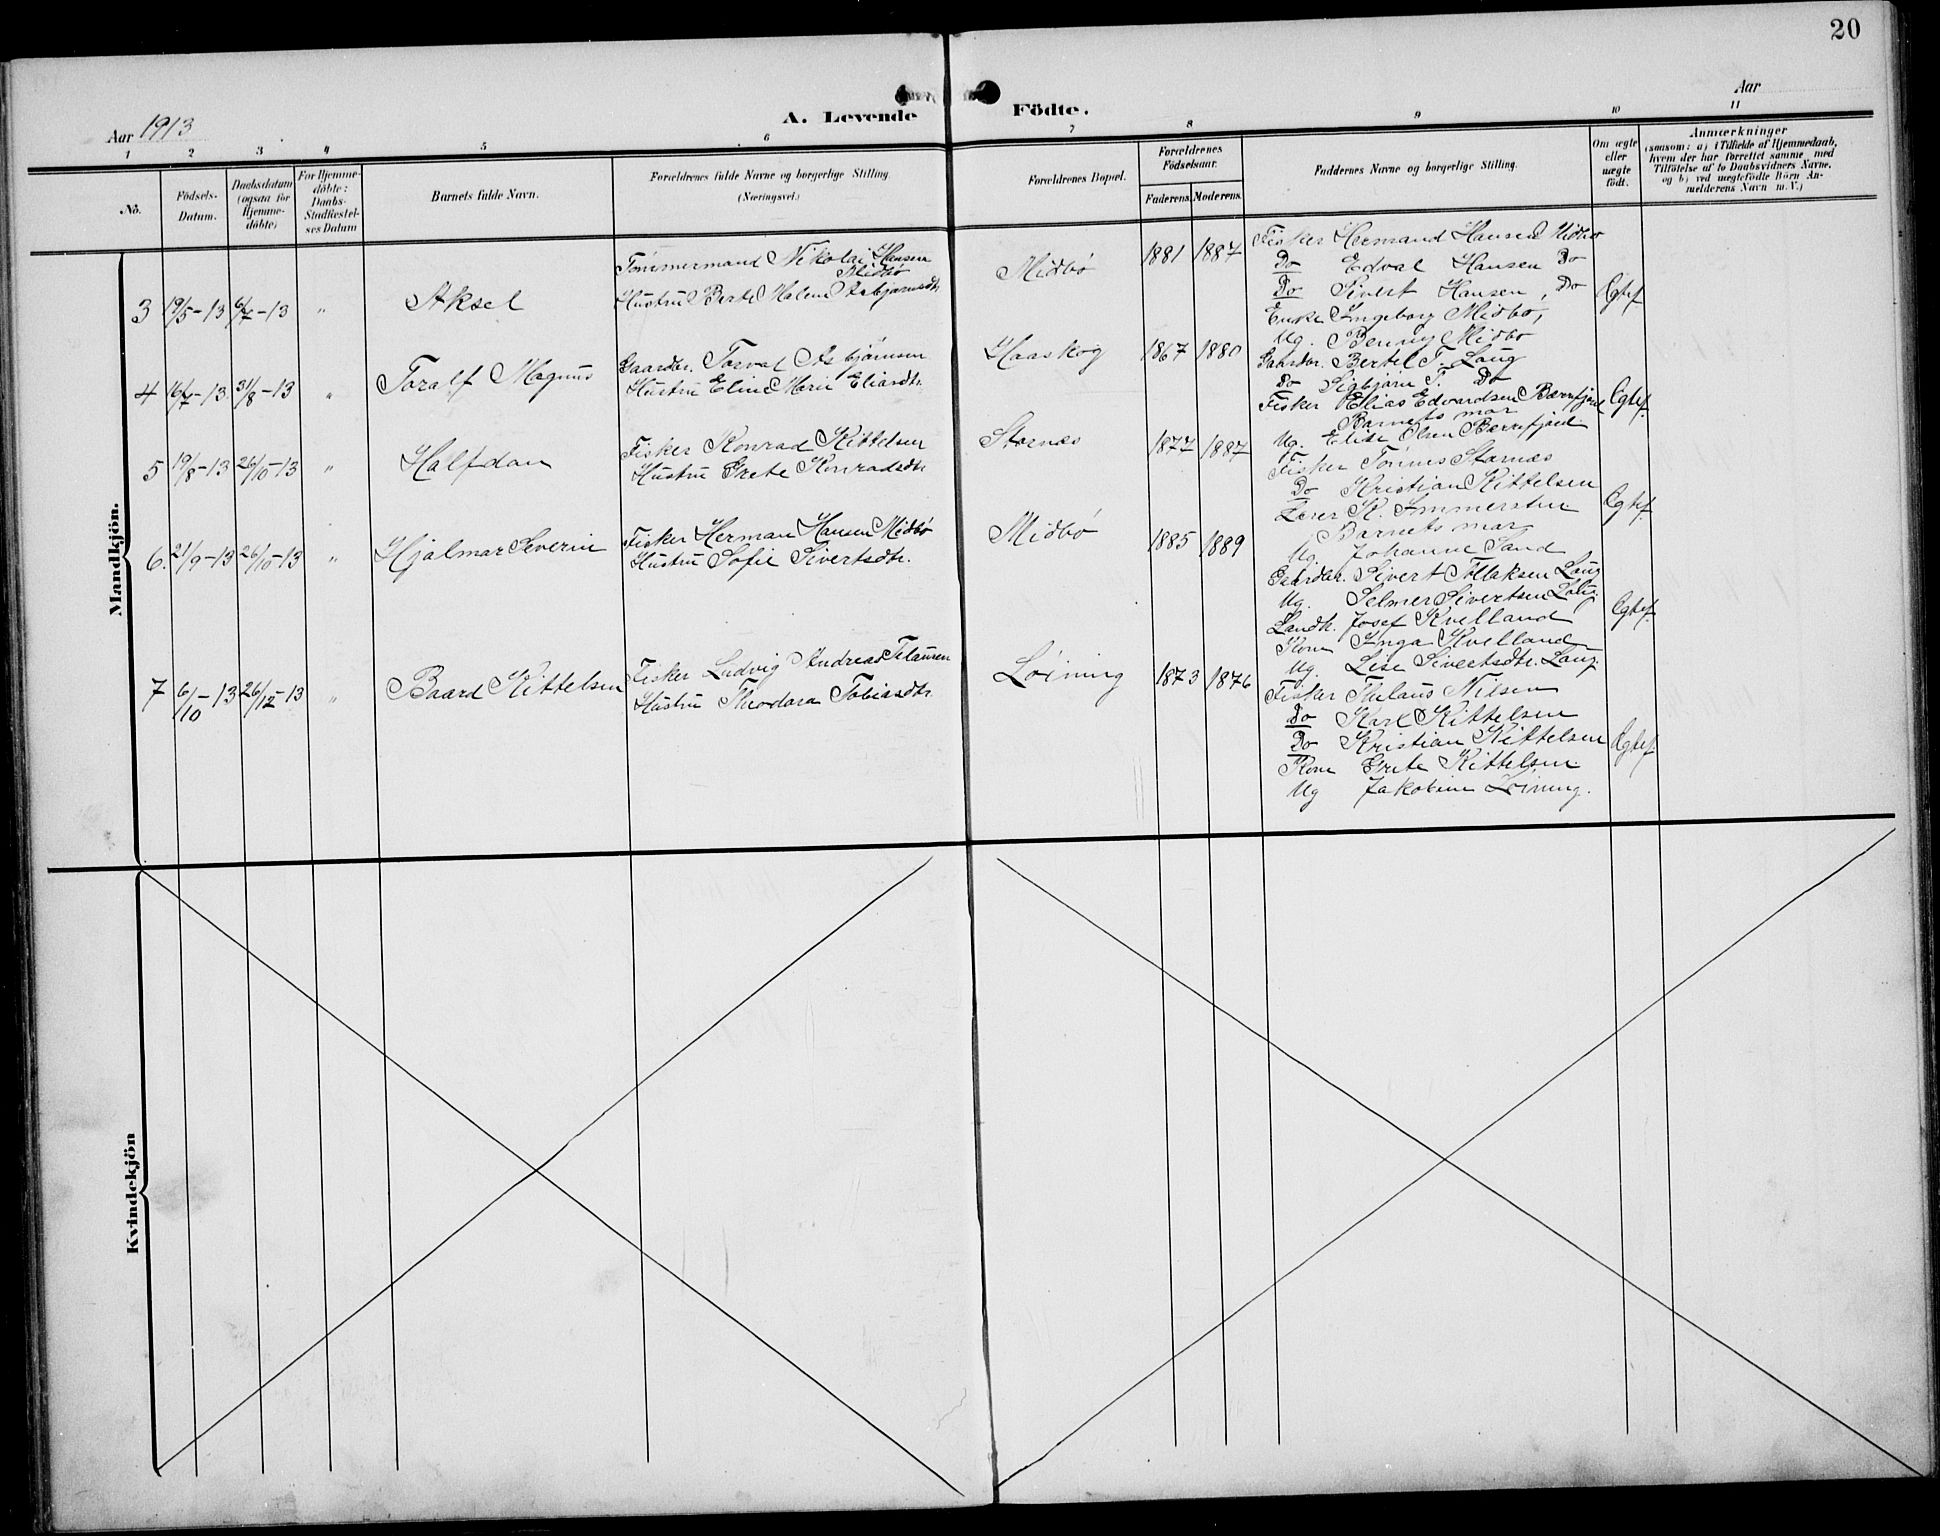 20
Aar 1913
A. Levende Födte.
Aar
1 2 3 4 5 6 7 8 9 10 11
No.
Födsels-Datum.
Daabsdatum (ogsaa for Hjemme-döbte)
For Hjemme-döbte: Daabs-Stadfæstel-ses Datum
Barnets fulde Navn.
Forældrenes fulde Navne og borgerlige Stilling.
(Næringsvei.)
Forældrenes Bopæl.
Forældrenes Födselsaar.
Faderens. Moderens.
Faddernes Navne og borgerlige Stilling.
Om ægte eller uægte födt.
Anmærkninger
(saasom: a) i Tilfælde af Hjemmedaab, hvem der har forrettet samme med Tilföielse af to Daabsvidners Navne, og b) ved uegtefödte Börn An-melderens Navn m. V.)
Mandkjön.
3 19/5-13 6/7-13 " Aksel
Tömmermand Nikolai Hansen
Midbö
Hustru Berte Malene Asbjörnsdtr.
Midbö 1881 1887
Fisker Hermand Hansen Midbö
Do Edval Hansen Do
Do Sivert Hansen, Do
Enke Ingeborg Midbö,
Ug. Benny Midbö
Egtef.
4 16/7-13 31/8-13 " Toralf Magnus
Gaardbr. Torval Asbjörnsen
Hustru Eline Marie Eliasdtr.
Haaskog 1867 1880
Gaardbr. Bertel T. Laug
Do Sigbjörn T. Do
Fisker Elias Edvardsen Barrefjord
Barnets mor
Ug. Elise Olsen Barrefjord
Egtef.
5 19/8-13 26/10-13 " Halfdan
Fisker Konrad Kittelsen
Hustru Grete Konradsdtr.
Starnæs 1877 1887
Fisker Tönnes Starnæs
Do Kristian Kittelsen
Lærer K. Immerstein
Barnets mor
Ug. Johanne Sand
Egtef.
6. 21/9-13 26/10-13 " Hjalmar Severin
Fisker Herman Hansen Midbö
Hustru Sofie Sivertsdtr.
Midbö 1885 1889
Gaardbr. Sivert Tollaksen Laug
Ug. Selmer Sivertsen Laug.
Landh. Josef Kvelland
Kone Inga Kvelland
Ug. Lise Sivertsdtr. Laug.
Egtef.
7 6/10-13 26/12-13 " Baard Kittelsen
Fisker Ludvig Andreas Tilausen
Hustru Theodora Tobiasdtr.
Löining 1873 1876
Fisker Thilaus Nilsen
Do Karl Kittelsen
Do Kristian Kittelsen
Kone Grete Kittelsen
Ug Jakobine Löining.
Egtef.
Kvindekjön